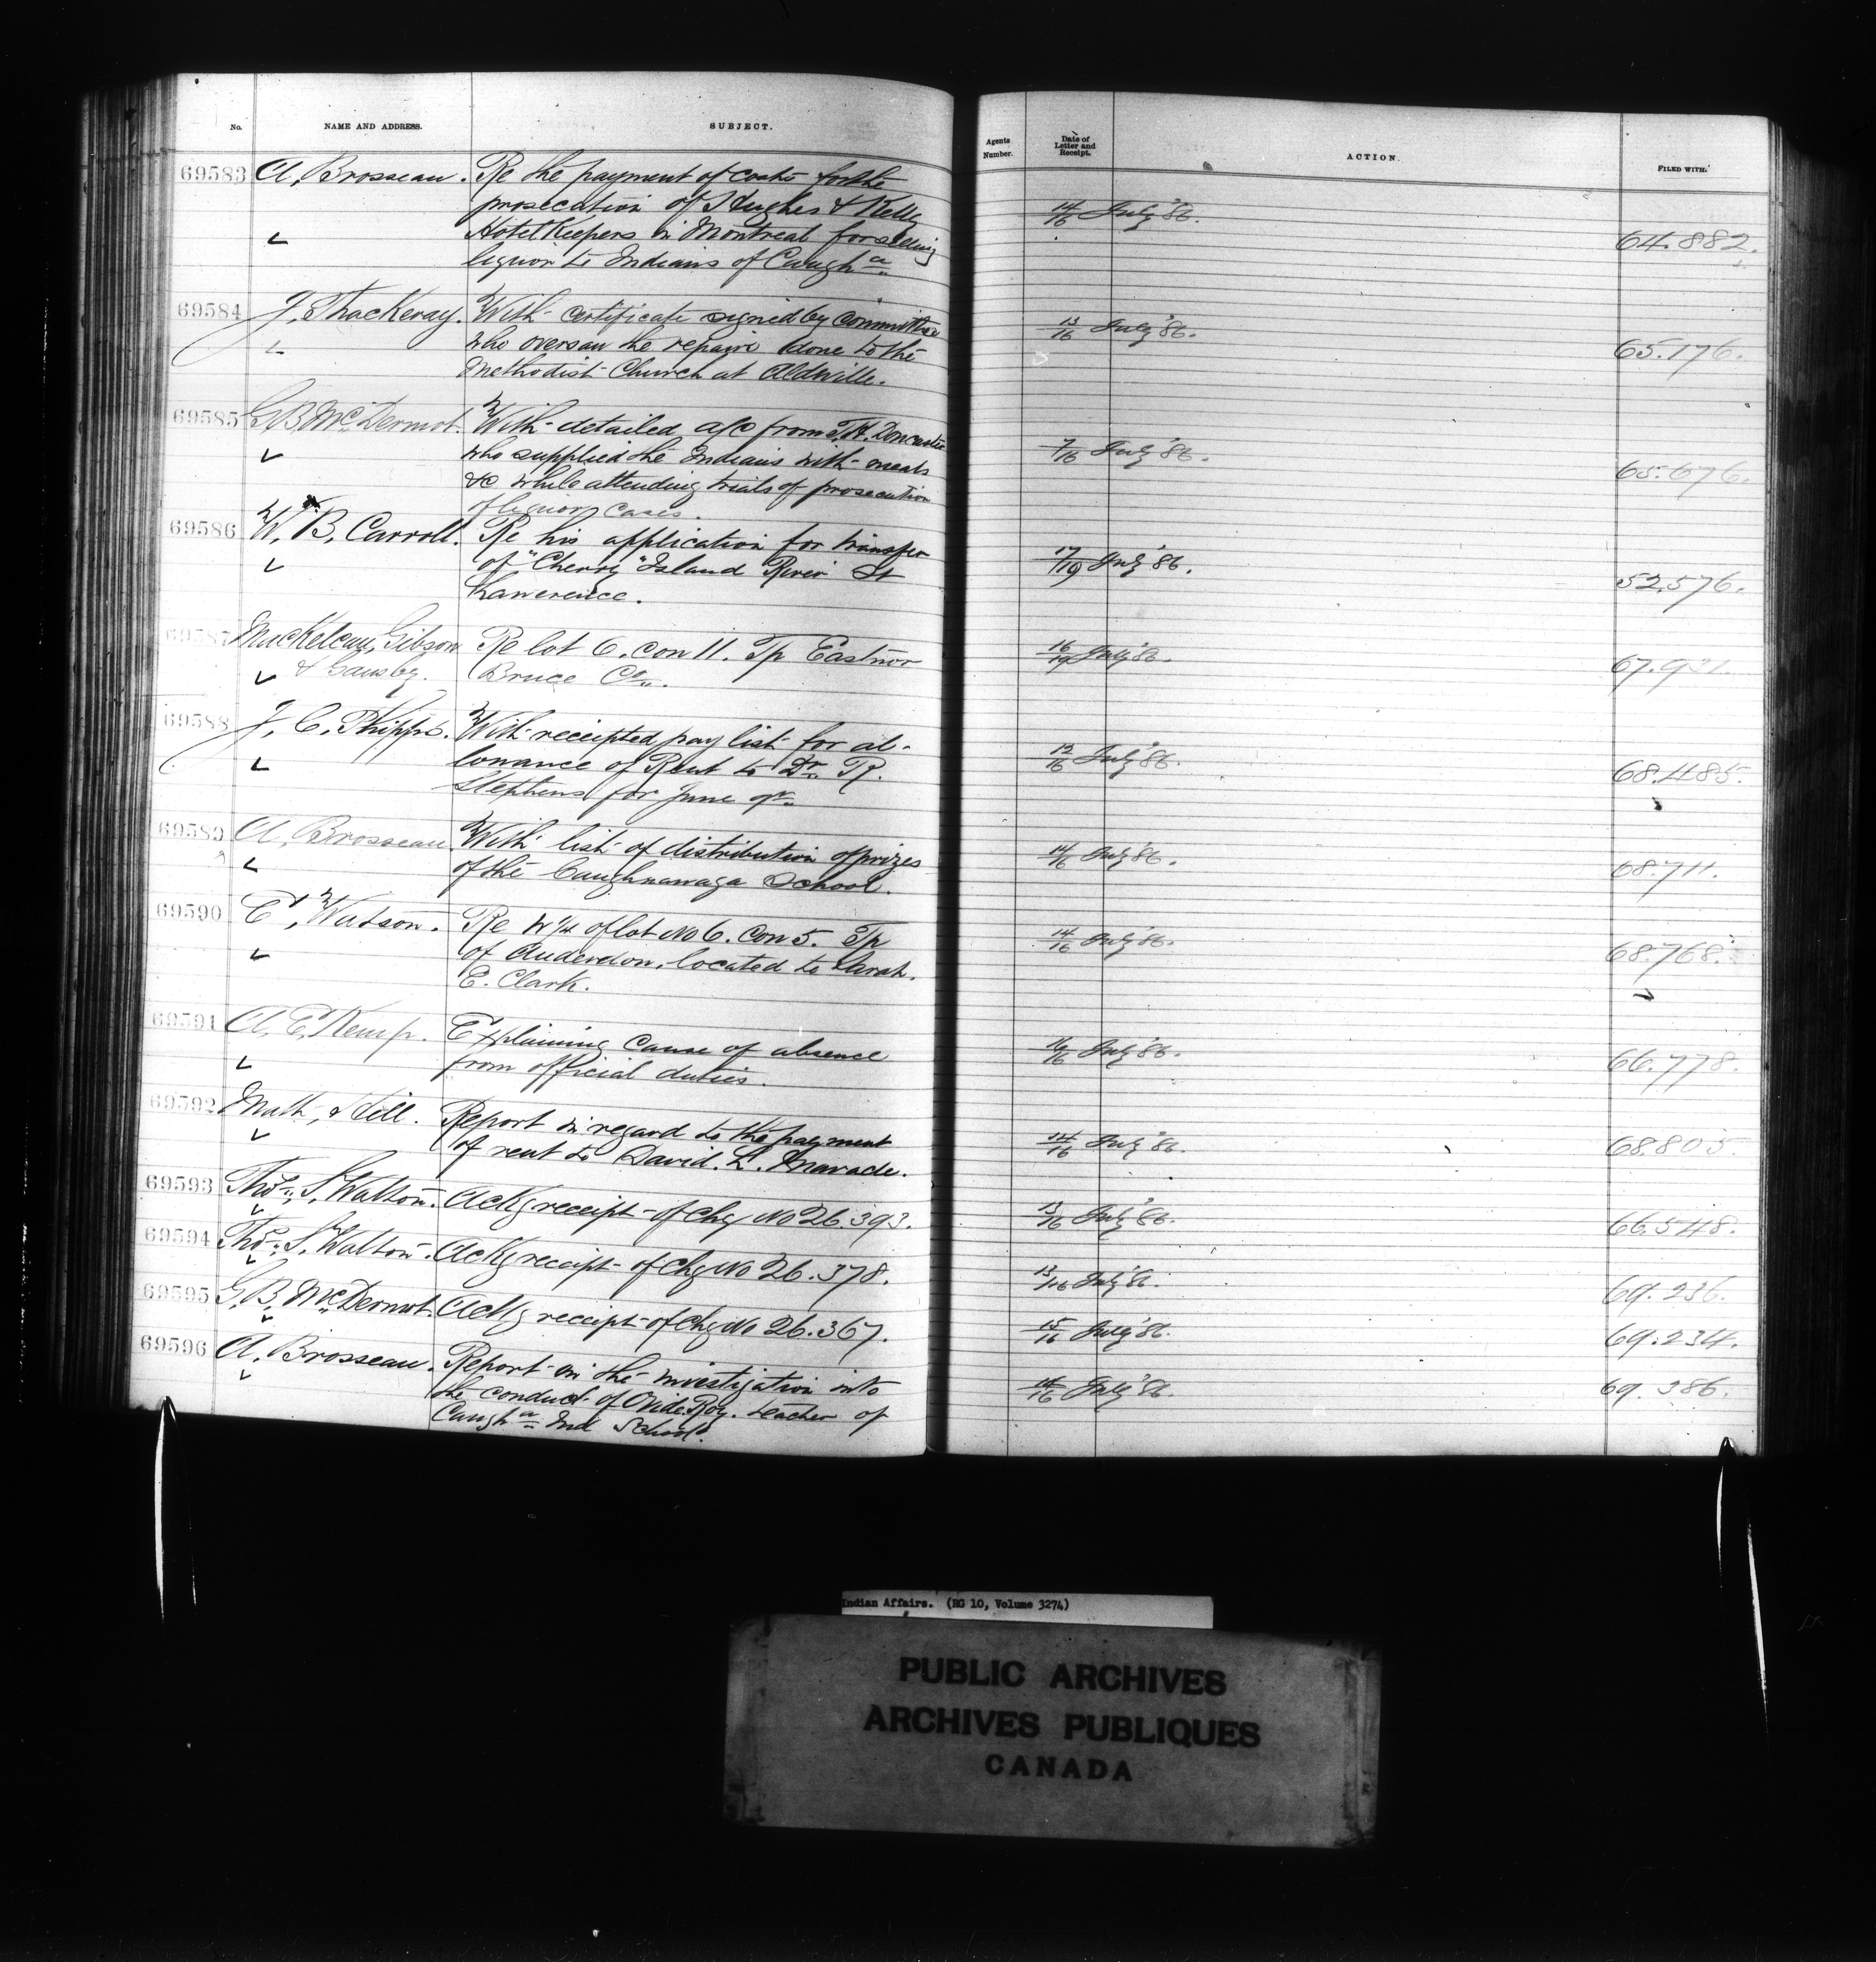 No. NAME AND ADDRESS. SUBJECT. Agents Number. Date of Letter and Receipt. ACTION. FILED WITH.
69583 A. Brosseau. Re the payment of costs for the
prosecution of Hughes & Kelly 14/16 July '86.
Hotel Keepers in Montreal for selling 64.882.
liquor to Indians of Caugha
69584 J. Thackeray. With certificate signed by Committee 13/16 July '86.
who oversaw the repairs done to the 65.176.
Methodist Church at Aldwille.
69585 G. B. McDermot. With detailed a/c from T. H. Doncaster
who supplied the Indians with meals 7/16 July '86.
&c while attending trials of prosecution 65.676.
of liquor cases.
69586 W. B. Carroll. Re his application for transfer
of "Cherry" Island River St 17/19 July '86.
Lawerence. 52.576.
69587 MacKelcan, Gibson Re lot 6. Con 11. Tp Eastnor 16/19 July '86.
& Gausby. Bruce Co. 67.921.
69588 J. C. Phipps. With receipted pay list for al-
lowance of Rent to Dr. R. 12/16 July '86.
Stephens for June qr. 68.485.
69589 A. Brosseau With list of distribution of prizes 14/16 July '86.
of the Caughnawaga School. 68.711.
69590 E. Watson. Re W 1/4 of lot No 6. Con 5. Tp 14/16 July '86.
of Anderdon, located to Sarah. 68.768.
E. Clark.
69591 A. E. Kemp. Explaining cause of absence 16/16 July '86.
from official duties. 66.778.
69592 Math. Hill. Report in regard to the payment 14/16 July '86.
of rent to David. L. Maracle. 68.805.
69593 Thos. S. Walton. Ackg receipt of Chq No 26.393. 13/16 July '86. 66.548.
69594 Thos. S. Walton. Ackg receipt of Chq No 26.378. 13/16 July '86. 69.236.
69595 G. B. McDermot. Ackg receipt of Chq No 26.367. 15/16 July '86. 69.234.
69596 A. Brosseau. Report on the investigation into 14/16 July '86. 69.386.
the conduct of Ovide Roy. teacher of
Caugha Ind School.
Indian Affairs. (RG 10, Volume 3274)
PUBLIC ARCHIVES
ARCHIVES PUBLIQUES
CANADA